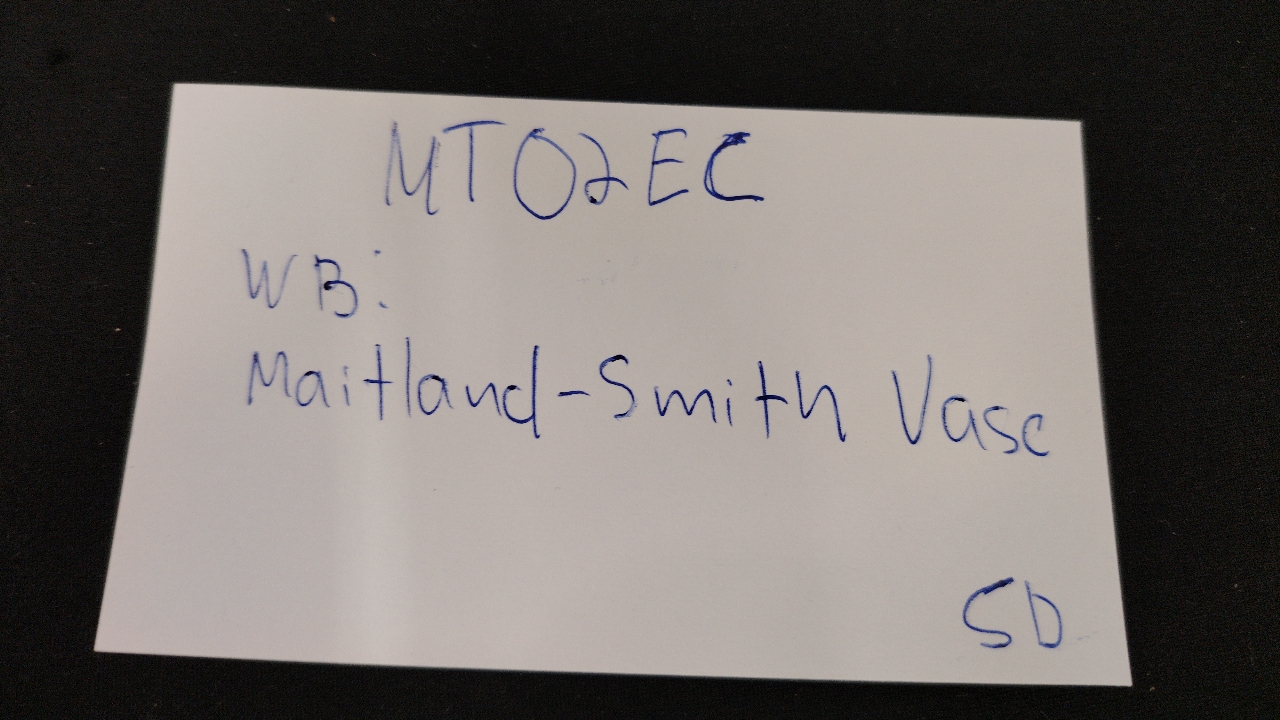 MT02EC
WB:
Maitland-Smith Vase
SD